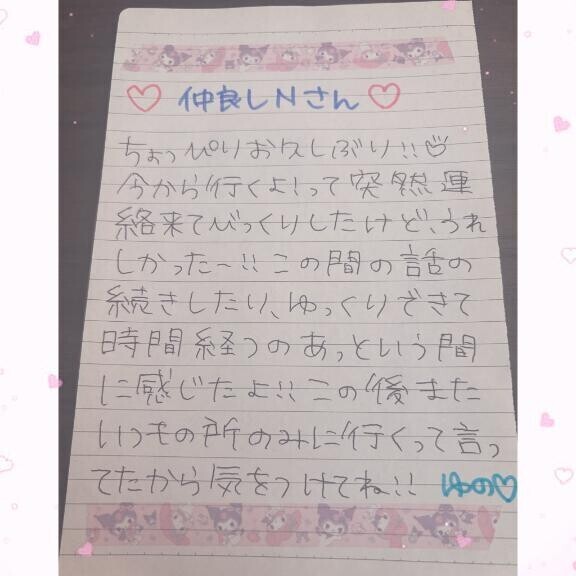 ♡ 仲良しNさん ♡
ちょっぴりお久しぶり!!♡
今から行くよ!って突然連
絡来てびっくりしたけど、うれ
しかった〜!!この間の話の
続きしたり、ゆっくりできて
時間経つのあっという間
に感じたよ!!この後また
いつもの所のみに行くって言っ
てたから気をつけてね!! ゆの♡